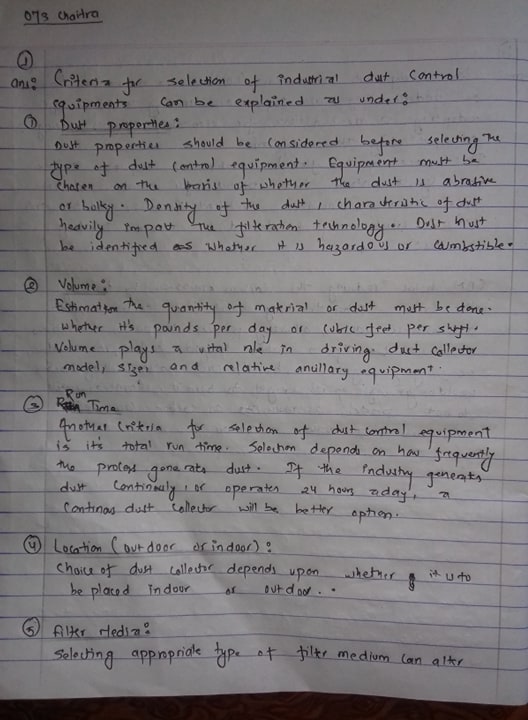 073 Chaitra
①
Ans: Criteria for selection of industrial dust control
equipments can be explained as under:
① Dust properties:
Dust properties should be considered before selecting the
type of dust control equipment. Equipment must be
chosen on the basis of whether the dust is abrasive
or bulky. Density of the dust, charateristic of dust
heavily impact the filteration technology. Dust must
be identified as whether it is hazardous or combstible.
② Volume:
Estimation the quantity of material or dust must be done.
whether it's pounds per day or cubic feet per shift.
Volume plays a vital role in driving dust collector
model, sizes and relative anullary equipment.
③ Run Time
Another criteria for selection of dust control equipment
is it's total run time. Selection depends on how frequently
the process generates dust. If the industry generates
dust continously, or operates 24 hours a day, a
continous dust collector will be better option.
④ Location (outdoor or indoor):
Choice of dust collector depends upon whether it is to
be placed indoor or outdoor..
⑤ Filter Media:
Selecting appropriate type of filter medium can alter